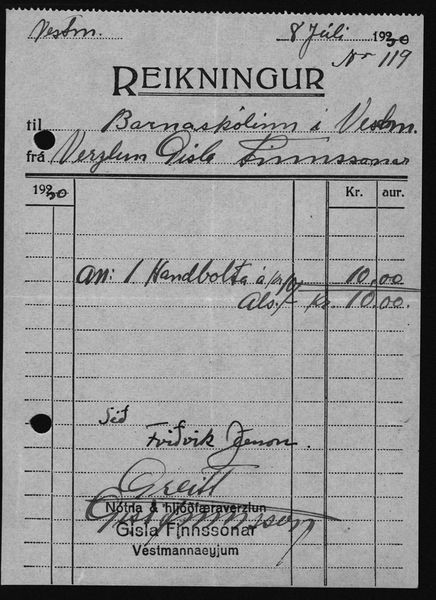 Vestm. 8 Júli 1930
No 119
REIKNINGUR
til Barnaskólinn í Vestm.
frá Verzlun Gísla Finnssonar
1930 Kr. aur.
1 Handbolta á kr 10,00
Als. Kr. 10.00.
Séð
Friðrik
Greitt
Nótna & hljóðfæraverzlun
Gísla Finnssonar
Vestmannaeyjum